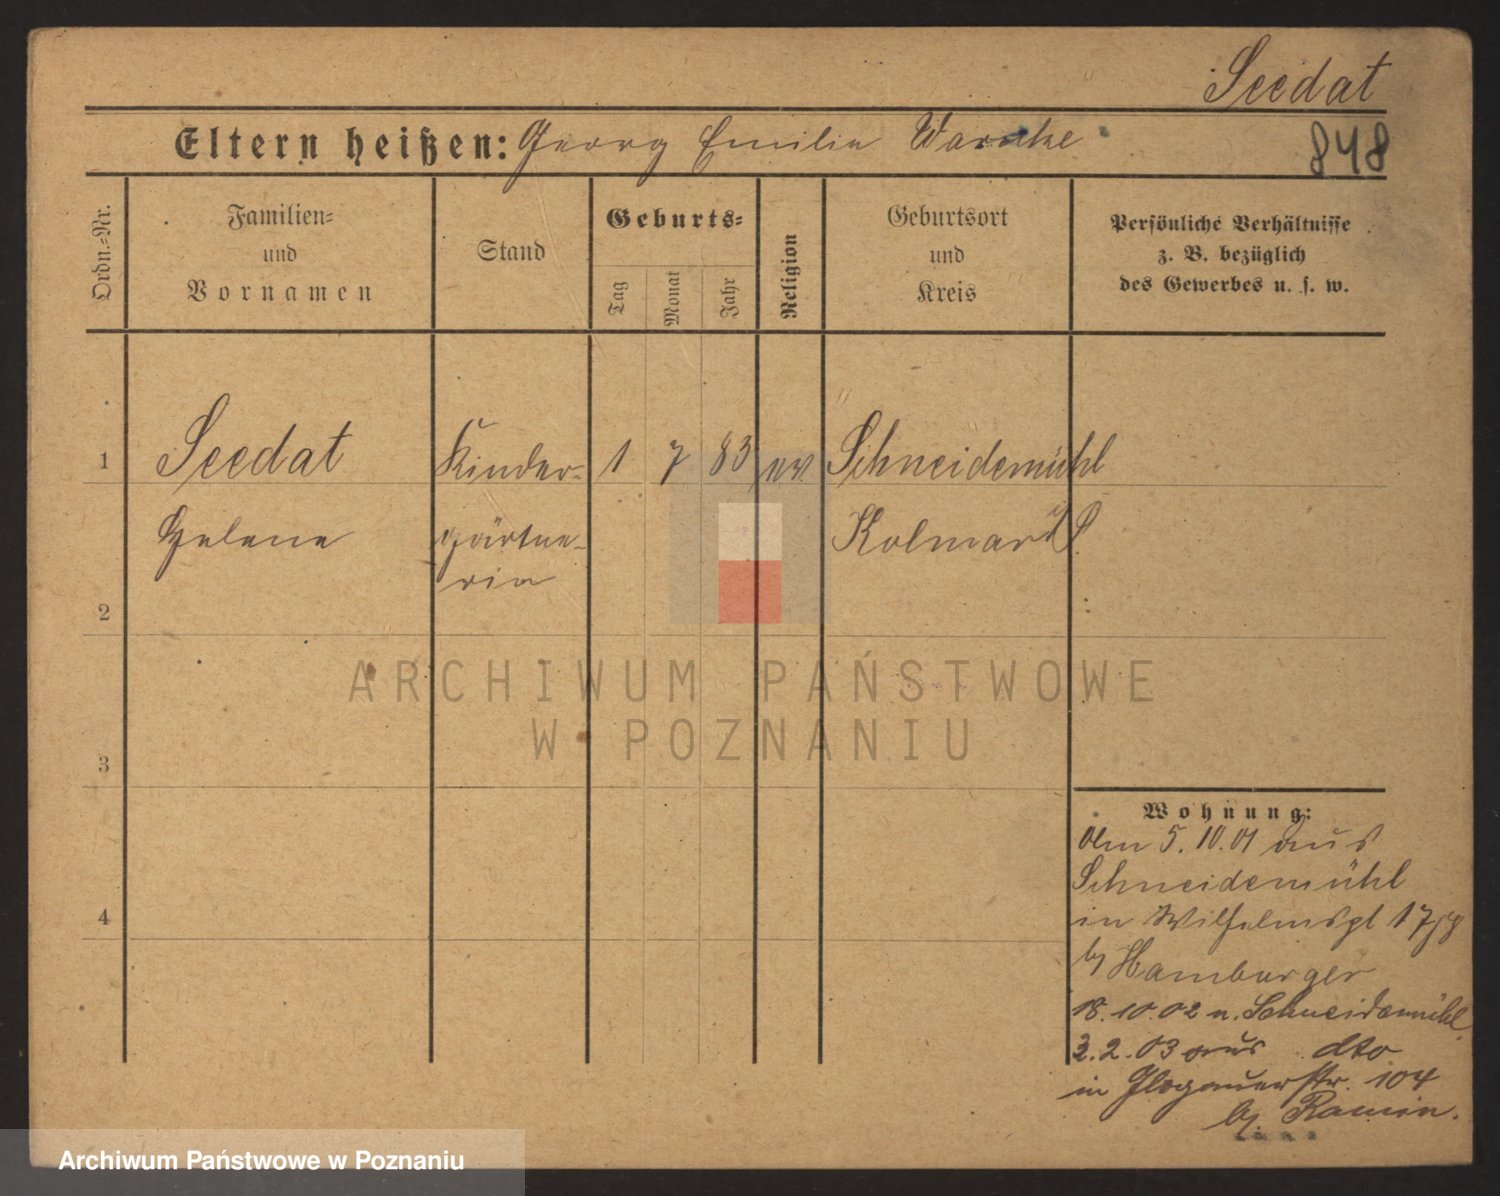 Seedat
Eltern heißen: Georg Emilie Warnke
848
Ordn.-Nr.
Familien-
und
Vornamen
Stand
Geburts-
Tag
Monat
Jahr
Religion
Geburtsort
und
Kreis
Persönliche Verhältnisse
z. B. bezüglich
des Gewerbes u. s. w.
1 Seedat Kinder- 1 7 83 ev. Schneidemühl
Helene gärtne- Kolmar i/P.
rin
2
3
4
Wohnung:
Am 5.10.01 aus
Schneidemühl
in Wilhelmspl 17
bj Hamburger
18.10.02 n. Schneidemühl
2.2.03 aus dto
in Glogauerstr. 104
bj. Ramin.
ARCHIWUM PAŃSTWOWE
W POZNANIU
Archiwum Państwowe w Poznaniu